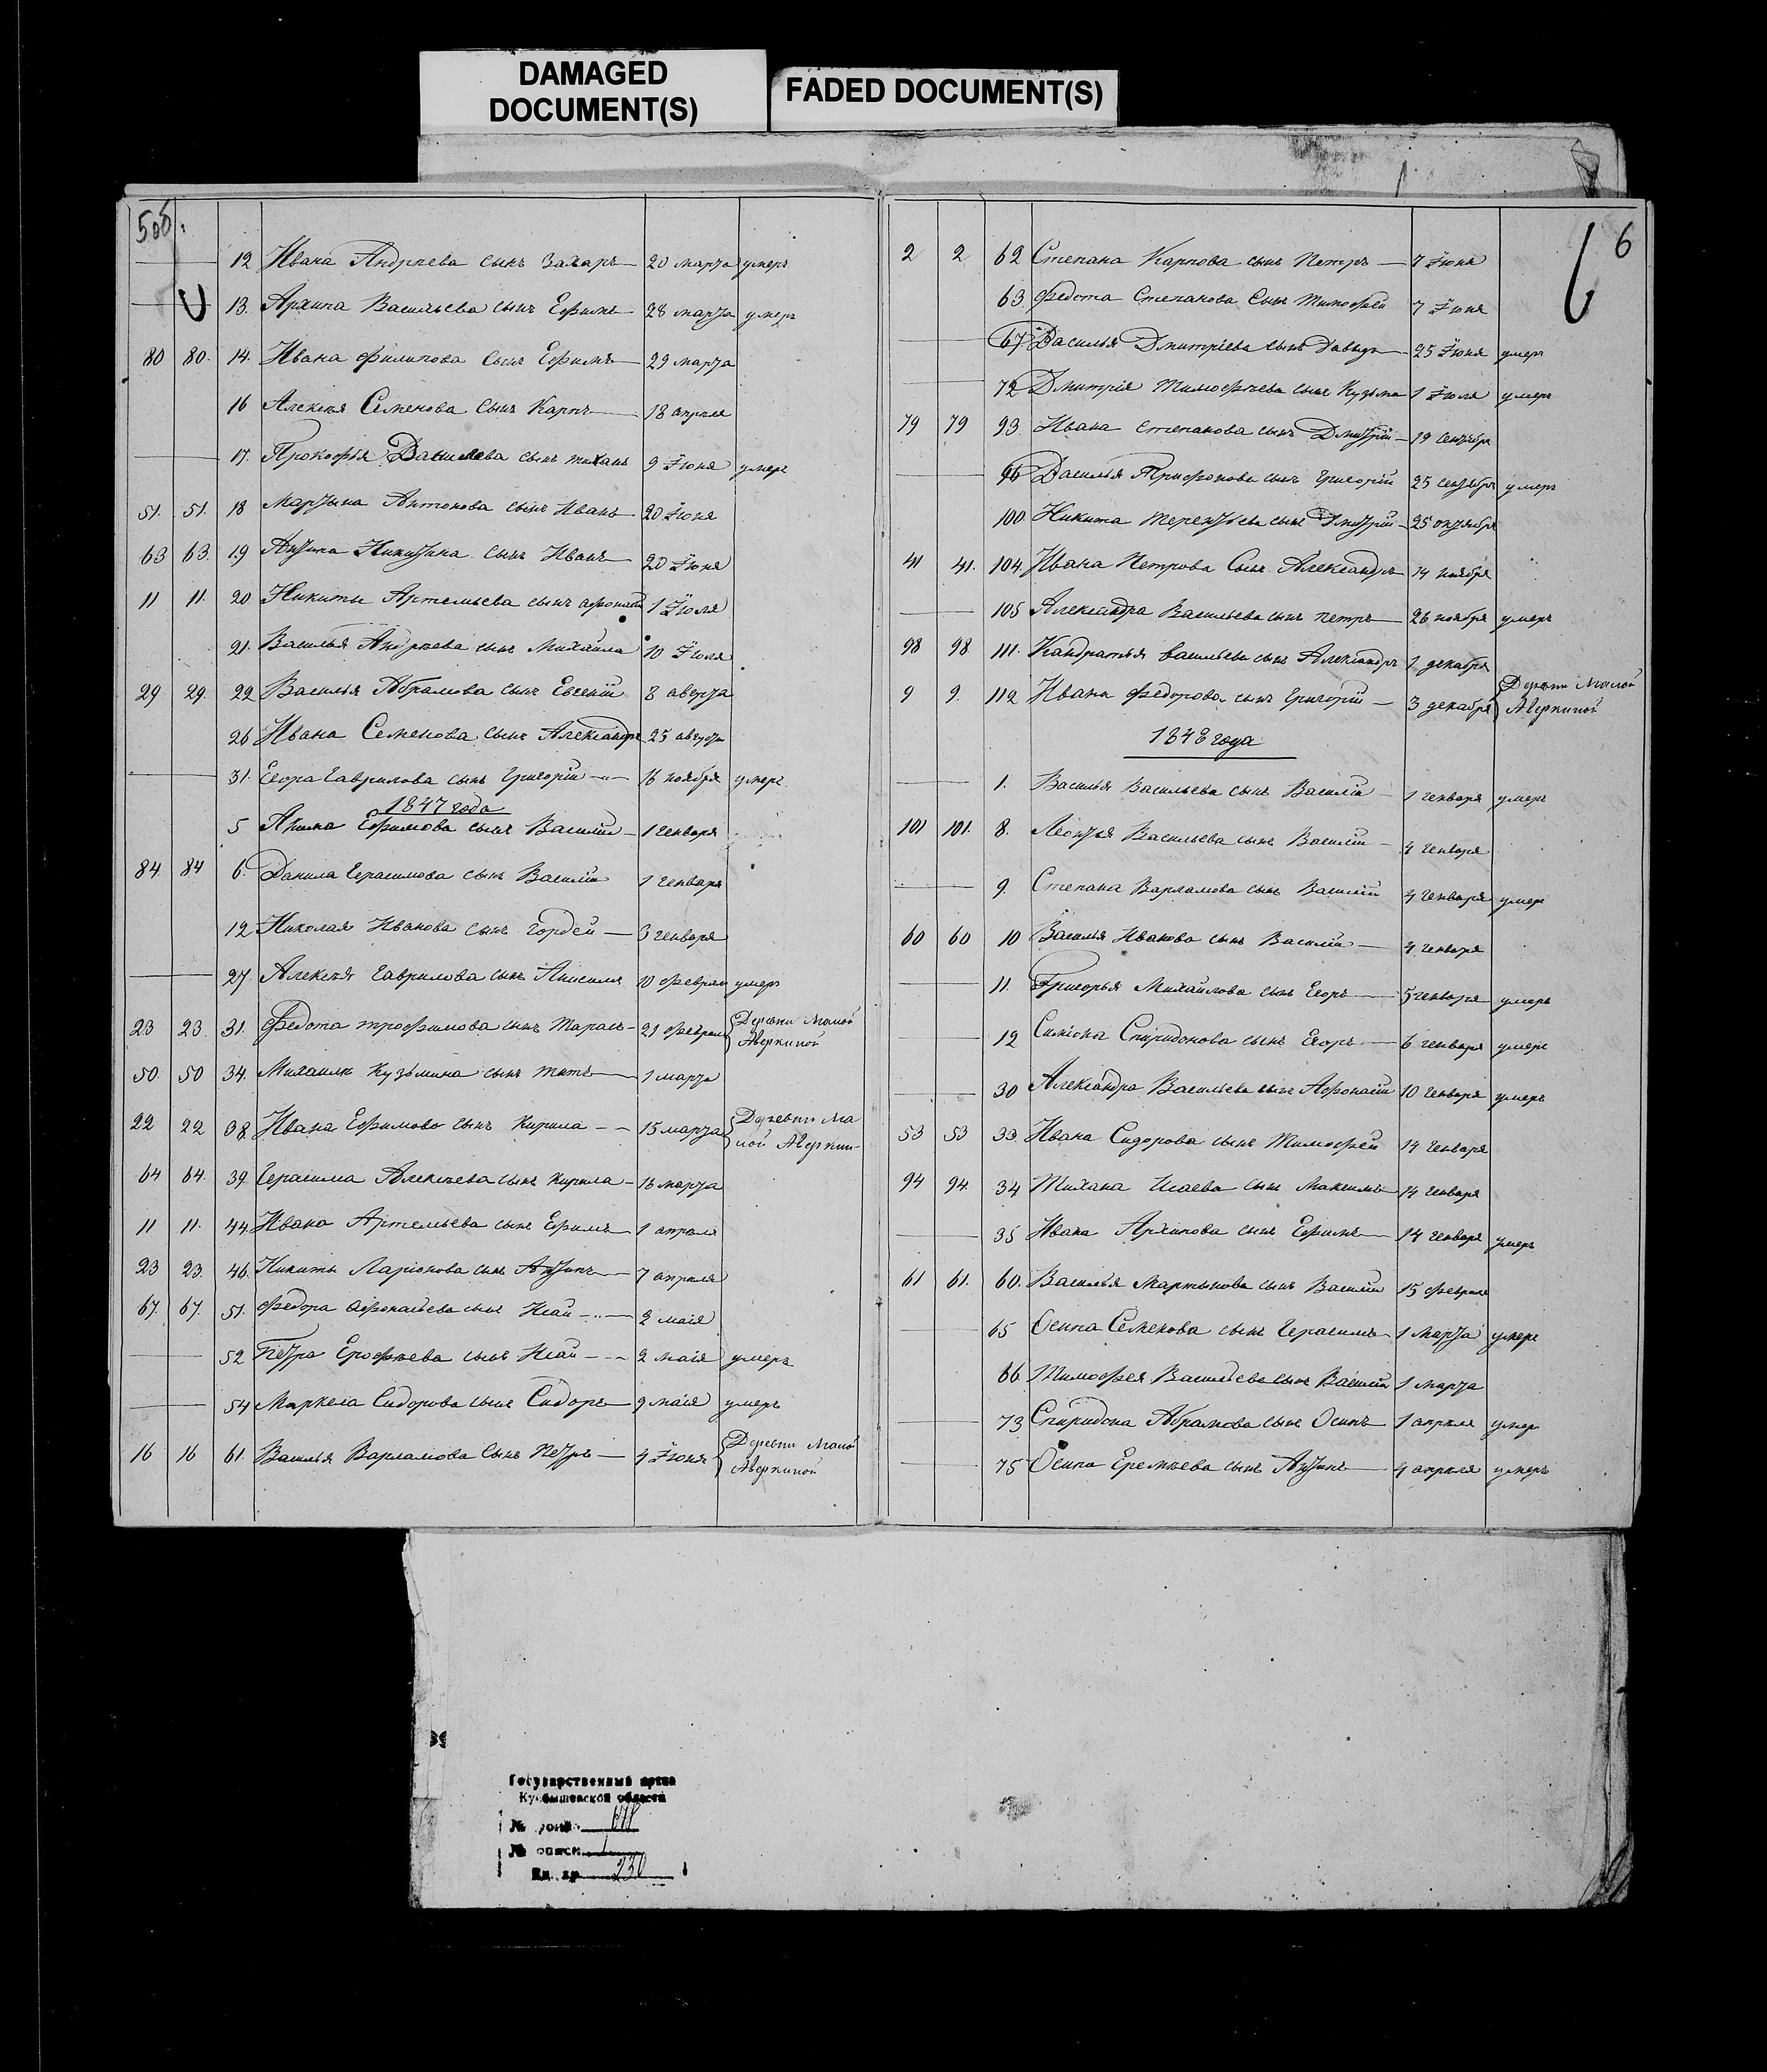 DAMAGED
DOCUMENT(S)
FADED DOCUMENT(S)
5 об.
12 Ивана Андреева сынъ Захаръ — 20 марта умеръ
13. Архипа Васильева сынъ Ефимъ — 28 марта умеръ
80 80. 14. Ивана Филипова сынъ Ефимъ — 29 марта
16 Алексея Семенова сынъ Карпъ — 18 апреля
17. Прокофья Данилева сынъ тиханъ 9 Iюня умеръ
51. 51. 18 Мартына Антонова сынъ Иванъ 20 Iюня
63 63. 19 Антипа Никитина сынъ Иванъ — 20 Iюня
11 11. 20 Никиты Артемьева сынъ афонасiй 1 Iюля
21. Василья Андреева сынъ Михайла 10 Iюля
29 29. 22 Василья Абрамова сынъ Евсенiй 8 августа
26 Ивана Семенова сынъ Александръ 25 августа
31. Егора Гаврилова сынъ Григорiй — 16 ноября умеръ
1847 года
5 Ефимова сынъ Василiй — 1 генваря
84 84 6. Данила Герасимова сынъ Василiй 1 генваря
12 Николая Иванова сынъ Гордей — 3 генваря
27 Алексея Гаврилова сынъ Анисимъ 10 Февраля умеръ
23 23. 31. Федота трофимова сынъ Тарасъ — 21 февраля Деревни Малой
Аверкиной
50. 50 34. Михайлы Кузьмина сынъ титъ — 1 марта
22 22 38. Ивана Ефимова сынъ Кирила — 15 марта Деревни Ма
лой Аверкин
64 64. 39. Герасима Алексеева сынъ Кирила — 16 марта
11 11. 44. Ивана Артемьева сынъ Ефимъ — 1 апреля
23 23. 46. Никиты Ларiонова сынъ Антипъ — 7 апреля
67. 67. 51. Федора афонасьева сынъ Исай — 2 маiя
52 Петра Ерофеева сынъ Исай — 2 маiя умеръ
54 Маркела Сидорова сынъ Сидоръ — 9 маiя умеръ
16 16 61. Василья Варламова Сынъ Петръ — 4 Iюня Деревни Малой
Аверкиной
6
2 2 62 Степана Карпова сынъ Петръ — 7 Iюня
63 Федота Степанова Сынъ тимофей 7 Iюня
67. Василья Дмитрiева сынъ Давыдъ — 25 Iюня умеръ
72 Дмитрiя Тимофеева сынъ Кузьма 1 Iюля умеръ
79 79 93. Ивана Степанова сынъ Дмитрiй — 19 сентября
96 Василья Трифонова сынъ Григорiй 25 сентября умеръ
100. Никита терентьева сынъ Дмитрiй — 25 октября
41 41. 104 Ивана Петрова Сынъ Александръ 14 ноября
105 Александра Васильева сынъ петръ — 26 ноября умеръ
98 98 111. Кандратья васильева сынъ Александръ 1 декабря
9 9. 112 Ивана Федорова сынъ Григорiй — 3 декабря Деревни Малой
Аверкиной
1848 года
1. Василья Васильева сынъ Василiй — 1 генваря умеръ
101 101. 8. Леонтья Васильева сынъ Василiй — 4 генваря
9. Степана Варламова сынъ Василiй 4 генваря умеръ
60 60 10 Василья Иванова сынъ Василiй — 4 генваря
11. Григорья Михайлова сынъ Егоръ — 5 генваря умеръ
12 Симiона Спиридонова сынъ Егоръ — 6 генваря умеръ
30 Александра Васильева сынъ Афонасiй 10 генваря умеръ
53 53 33. Ивана Сидорова сынъ Тимофей 14 генваря
94 94. 34 Тихана Исаева сынъ Максимъ 14 генваря
35 Ивана Архипова сынъ Ефимъ — 14 генваря умеръ
61 61. 60. Василья Мартынова сынъ Василiй 15 Февраля
65 Осипа Семенова сынъ Герасимъ 1 марта умеръ
66 Тимофея Васильева сынъ Василiй 1 марта
73 Спиридона Абрамова сынъ Осипъ 1 апреля умеръ
75 Осипа Еремеева сынъ Антипъ — 4 апреля умеръ
Государственный архив
Куйбышевской области
№ фонда
№ описи 1
Ед. хр. 230